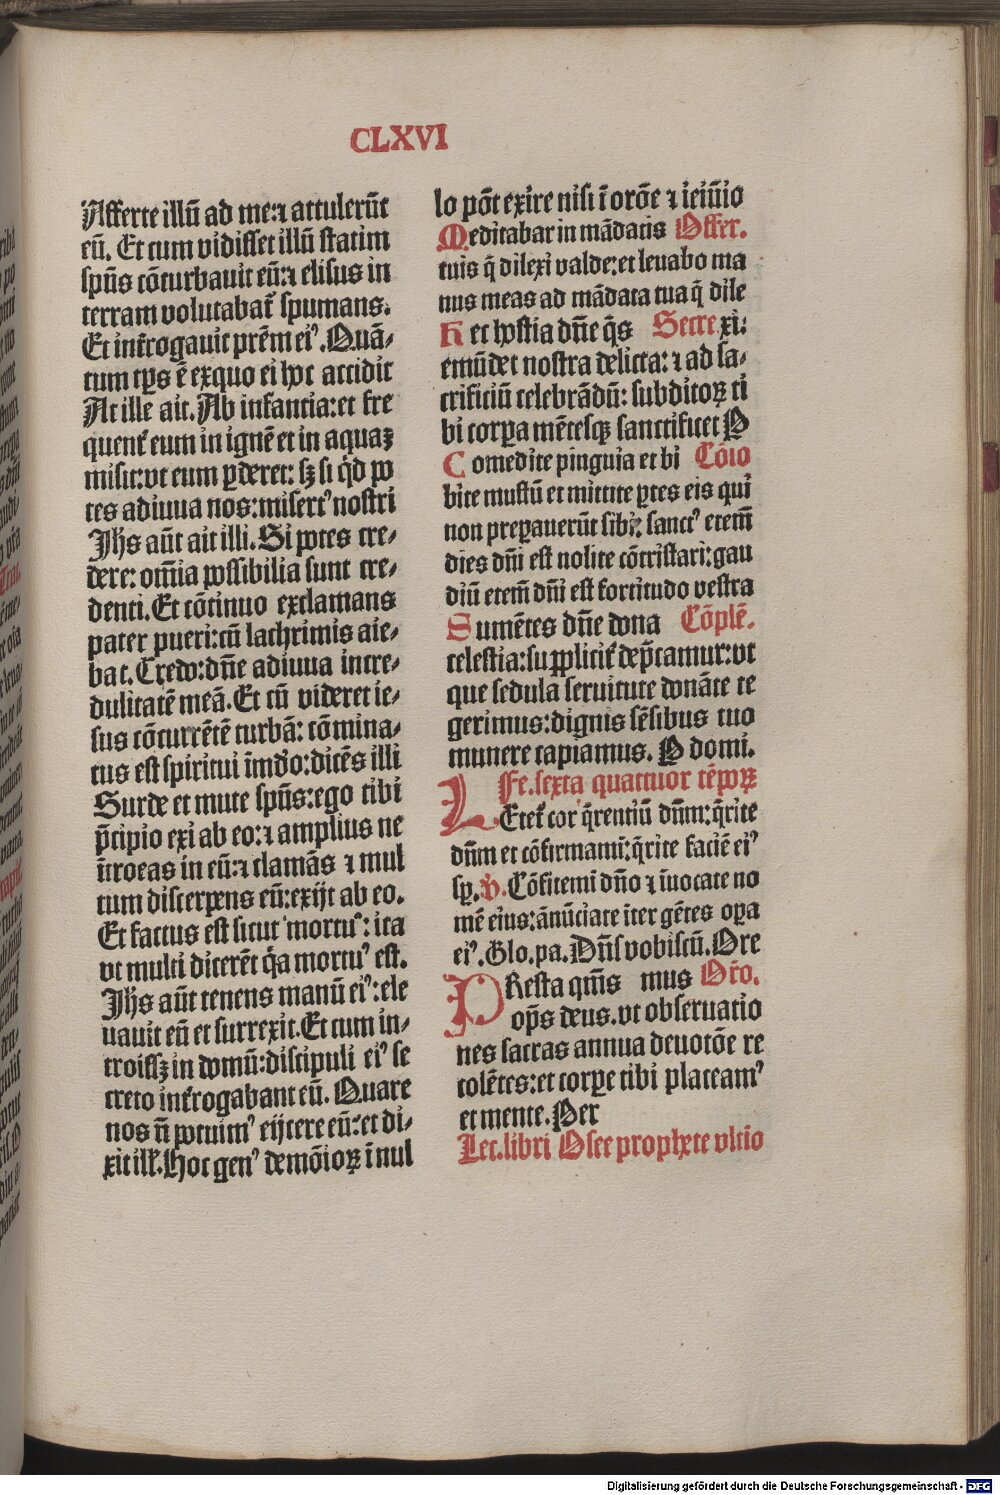 CLXVI
Afferte illũ ad me:⁊ attulerũt
eũ. Et cum vidisset illũ statim
spũs cõturbauit eũ:⁊ elisus in
terram volutabat᷑ spumans.
Et int᷑rogauit prẽm eiꝰ. Quã-
tum tp̱s ẽ exquo ei hoc accidit
At ille ait. Ab infantia:et fre
quent᷑ eum in ignẽ et in aquaꝫ
misit:vt eum ꝑderet: sꝫ si q̇d po
tes adiuua nos:misertꝰ nostri
Jhs aũt ait illi. Si potes cre-
dere: om̃ia possibilia sunt cre-
denti. Et cõtinuo exclamans
pater pueri:cũ lachrimis aie-
bat. Credo:dñe adiuua incre-
dulitatẽ meã. Et cũ videret ie-
sus cõcurrẽtẽ turbã: cõmina-
tus est spiritui ĩmdo:dicẽs illi
Surde et mute spũs:ego tibi
p̃cipio exi ab eo:⁊ amplius ne
ĩtroeas in eũ:⁊ clamãs ⁊ mul
tum discerpens eũ:exijt ab eo.
Et factus est sicut mortuꝰ: ita
vt multi dicerẽt q̃a mortuꝰ est.
Jhs aũt tenens manũ eiꝰ:ele
uauit eũ et surrexit. Et cum in-
troissꝫ in domũ:discipuli eiꝰ se
creto int᷑rogabant eũ. Quare
nos ñ potuimꝰ eijcere eũ:et di-
xit ill᷑. Hoc genꝰ demõioꝝ ĩ nul
lo põt exire nisi ĩ orõe ⁊ ieiũio
Meditabar in mãdatis Offer.
tuis q̃ dilexi valde:et leuabo ma
nus meas ad mãdata tua q̃ dile
H et hostia dñe q̃s Secre. xi:
emũdet nostra delicta: ⁊ ad sa-
crificiũ celebrãdũ: subditoꝝ ti
bi corꝑa mẽtesqꝫ sanctificet P
Comedite pinguia et bi Cõio
bite mustũ et mittite ꝑtes eis qui
non preꝑauerũt sibi: sanctꝰ etem̃
dies dñi est nolite cõtristari: gau
diũ etem̃ dñi est fortitudo vestra
Sumẽtes dñe dona Cõplẽ.
celestia:supplicit᷑ dep̃camur:vt
que sedula seruitute donãte te
gerimus: dignis sẽsibus tuo
munere capiamus. P domi.
Fe. sexta quattuor tẽpoꝝ
LEtet᷑ cor q̃rentiũ dñm: q̃rite
dñm et cõfirmamĩ:q̃rite faciẽ eiꝰ
sꝑ. v̇. Cõfitemi dño ⁊ ĩuocate no
mẽ eius: ãnũciate iter gẽtes oꝑa
eiꝰ. Glo. pa. Dñs vobiscũ. Ore
PResta qm̃s mus Orõ.
op̃s deus. vt obseruatio
nes sacras annua deuotõe re
colẽtes:et corꝑe tibi placeamꝰ
et mente. Per
Lec. libri Osee prophete vltio
Digitalisierung gefördert durch die Deutsche Forschungsgemeinschaft - DFG